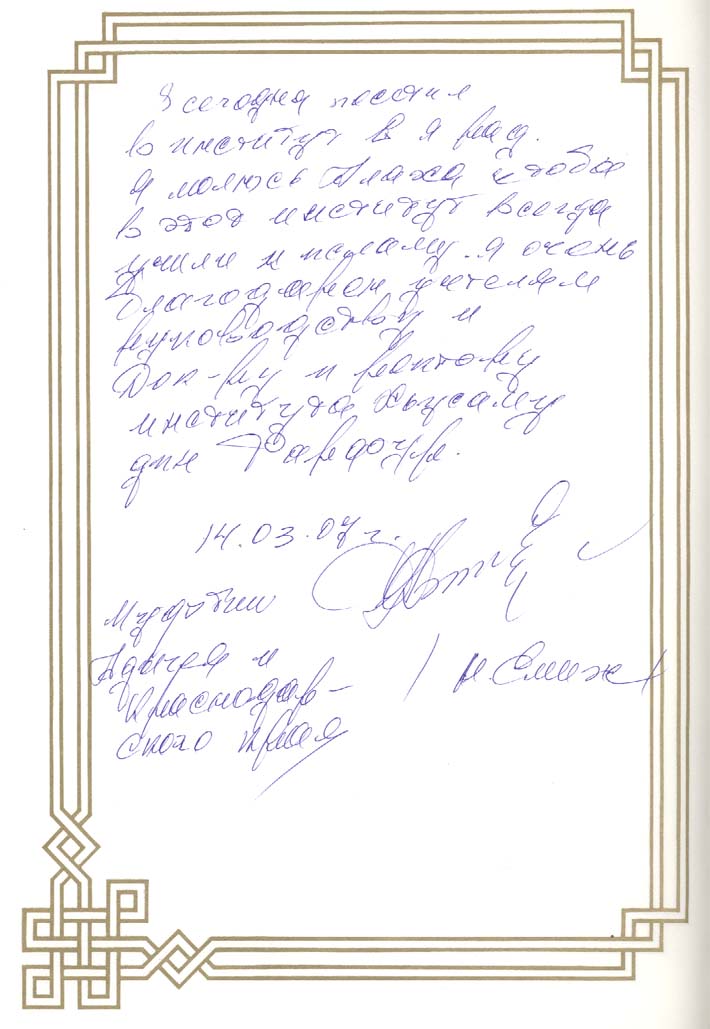 Я сегодня посетил
в институт в я рад.
я молюсь Алаха чтобы
в этот институт всегда
учили исламу. я очень
благодарен учителям
руководству и
Док-ру и ректору
института Хьусаму
дин
14.03.07 г.
Муфтий
Адыгея и
Краснодар-
ского края
Н. Емиж